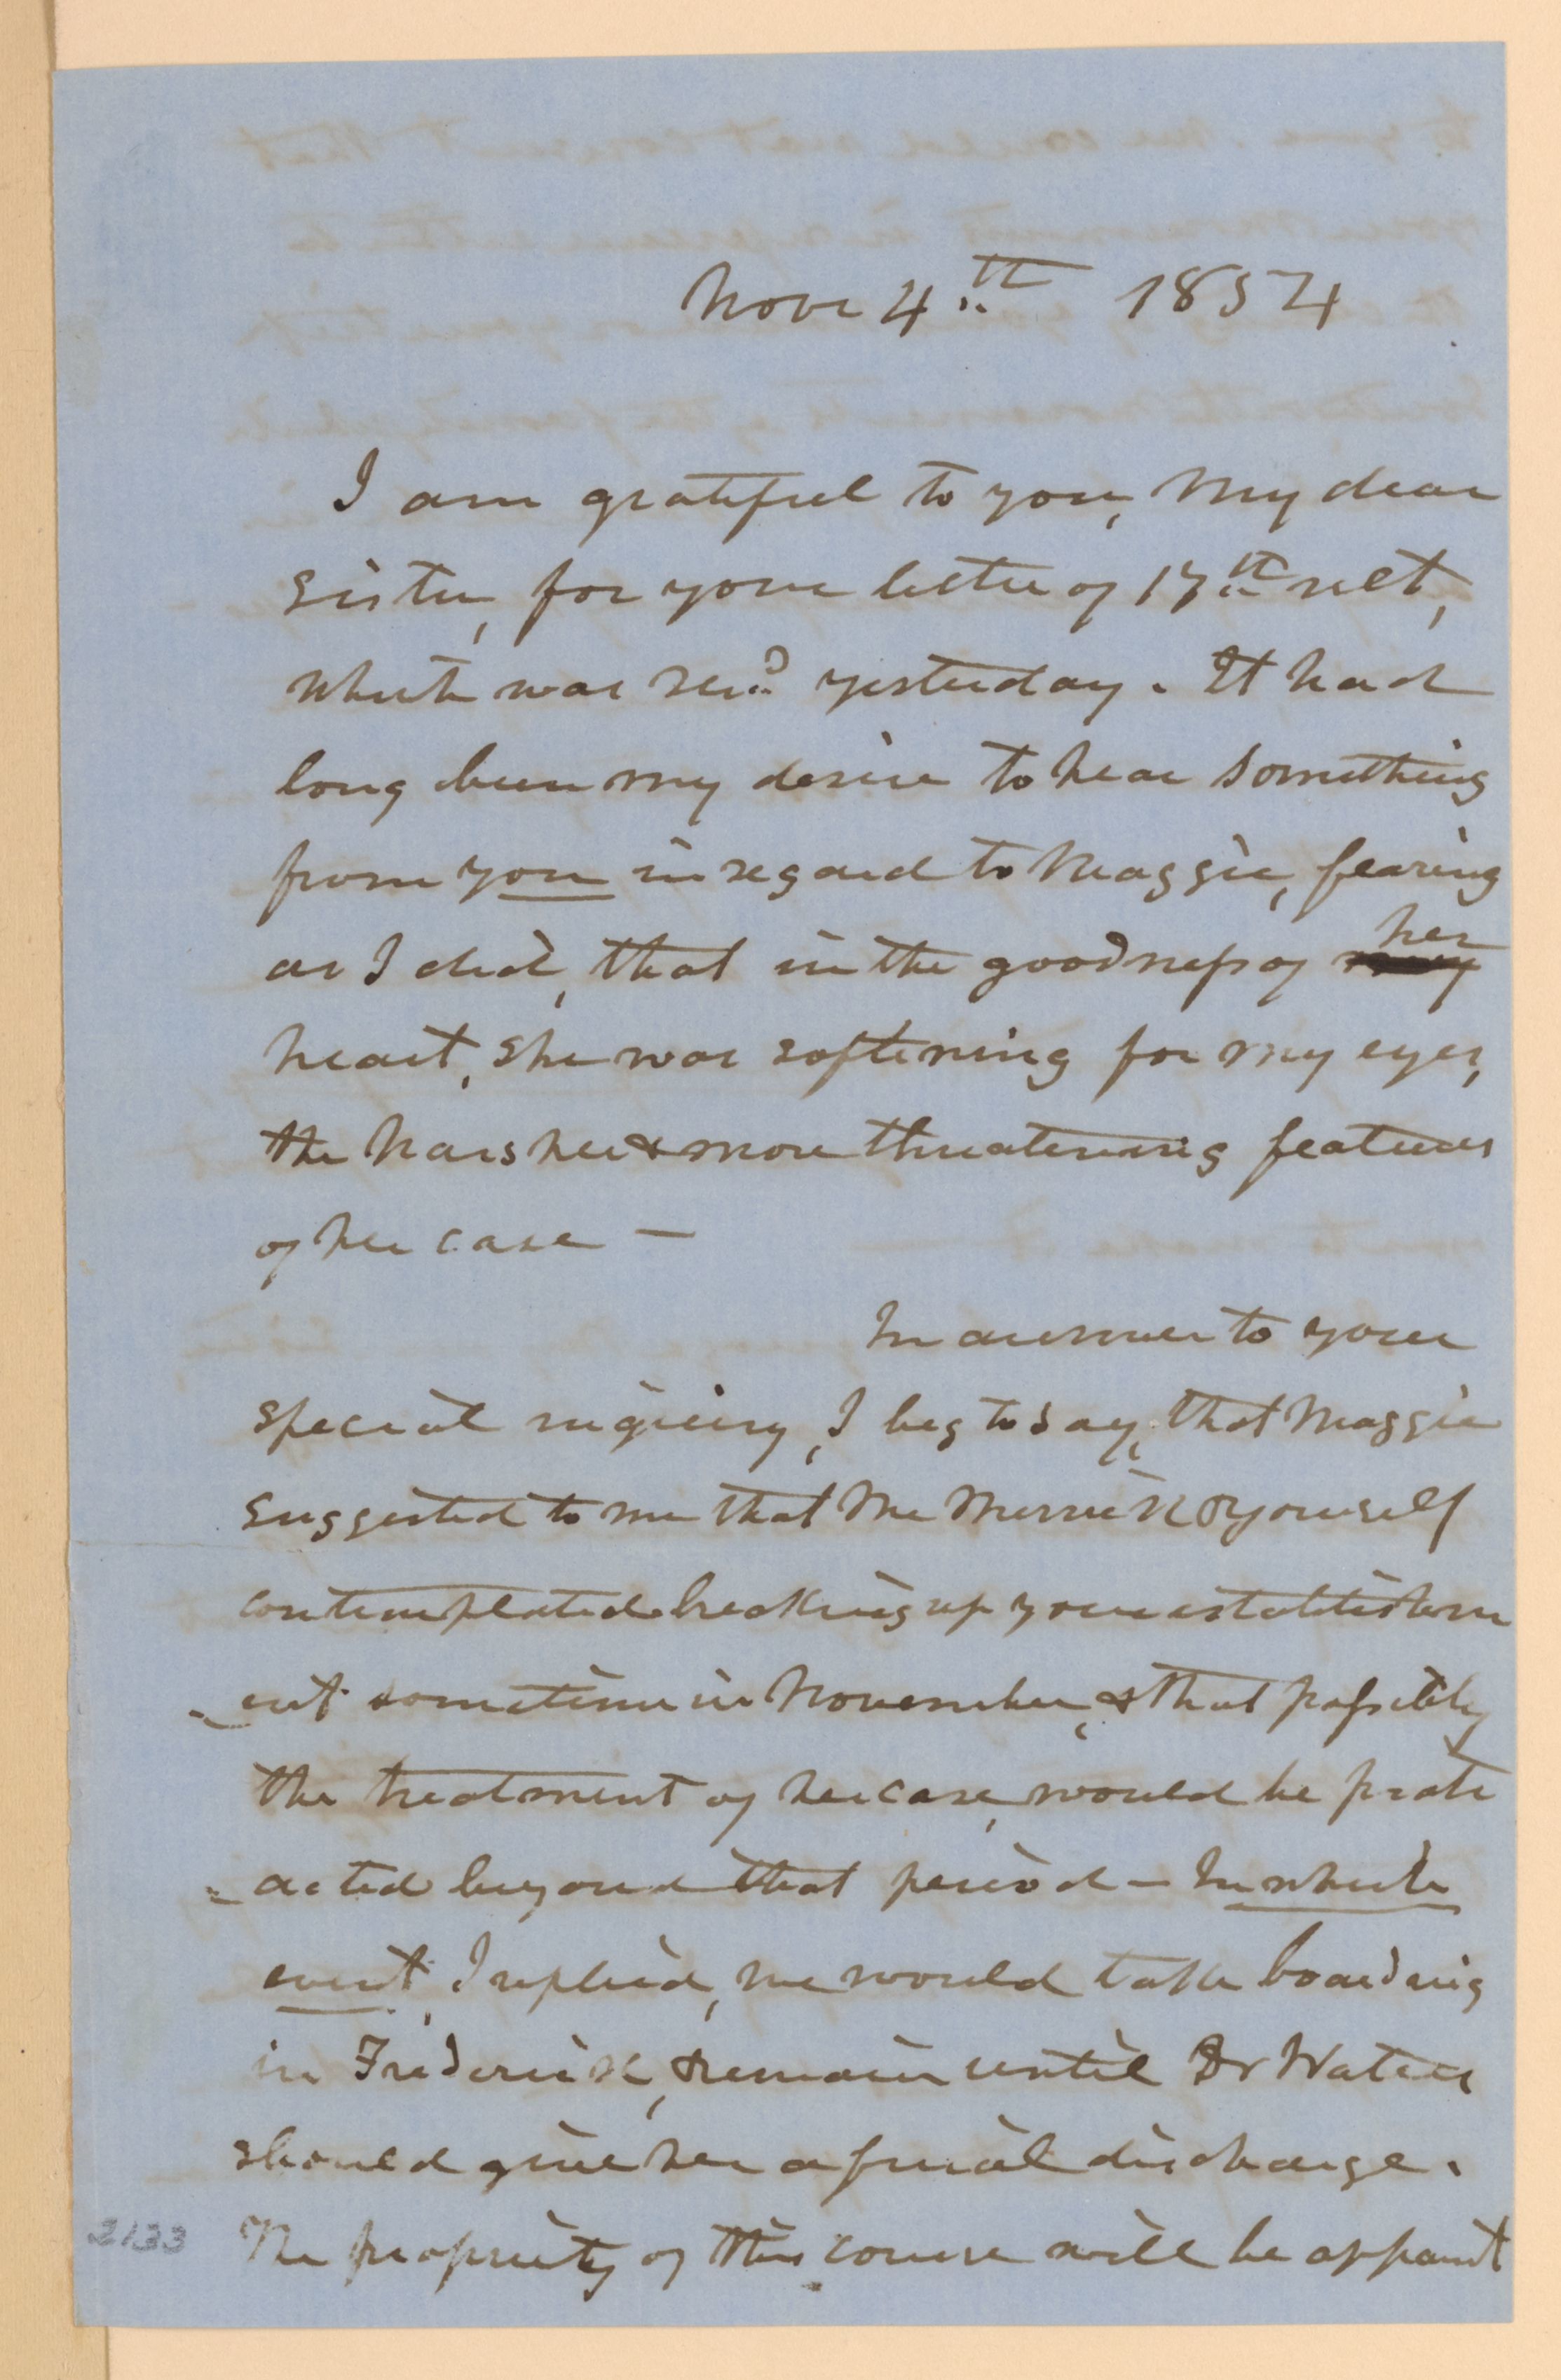 Nov 4th 1854
I am grateful to you, my dear
sister, for your letter of 17th ult,
which was recd yesterday. It had
long been my desire to hear something
from you in regard to Maggie, fearing
as I did, that in the goodness of her
heart, she was softening for my eyes,
the harsher & more threatening features
of her case —
In answer to your
special inquiry, I beg to say, that Maggie
suggested to me that Mr Merrick & yourself
contemplated breaking up your establishm
ent sometime in November, & that possibly
the treatment of her case, would be protr
acted beyond that period — In which
event, I replied, we would take boarding
in Frederick, & remain until Dr Waters
should give her a final discharge.
The propriety of this course will be apparent
2133